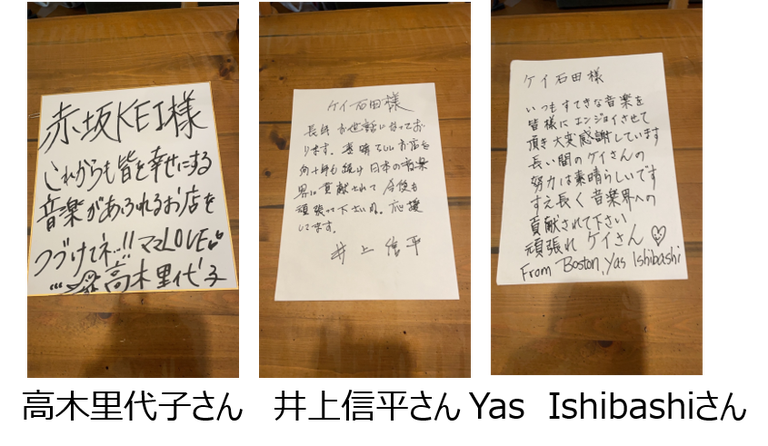 赤坂KEI様
これからも皆を幸せにする
音楽があふれるお店を
つづけてネ…!! ママLOVE
高木里代子
ケイ石田様
長年お世話になってお
ります。素晴らしいお店を
何十年も続け日本の音楽
界に貢献されて今後も
頑張って下さいね。応援
してます。
井上信平
ケイ石田様
いつもすてきな音楽を
皆様にエンジョイさせて
頂き大変感謝しています
長い間のケイさんの
努力は素晴らしいです
すえ長く音楽界への
貢献されて下さい
頑張れ ケイさん♡
From Boston, Yas Ishibashi
高木里代子さん
井上信平さん
Yas Ishibashiさん